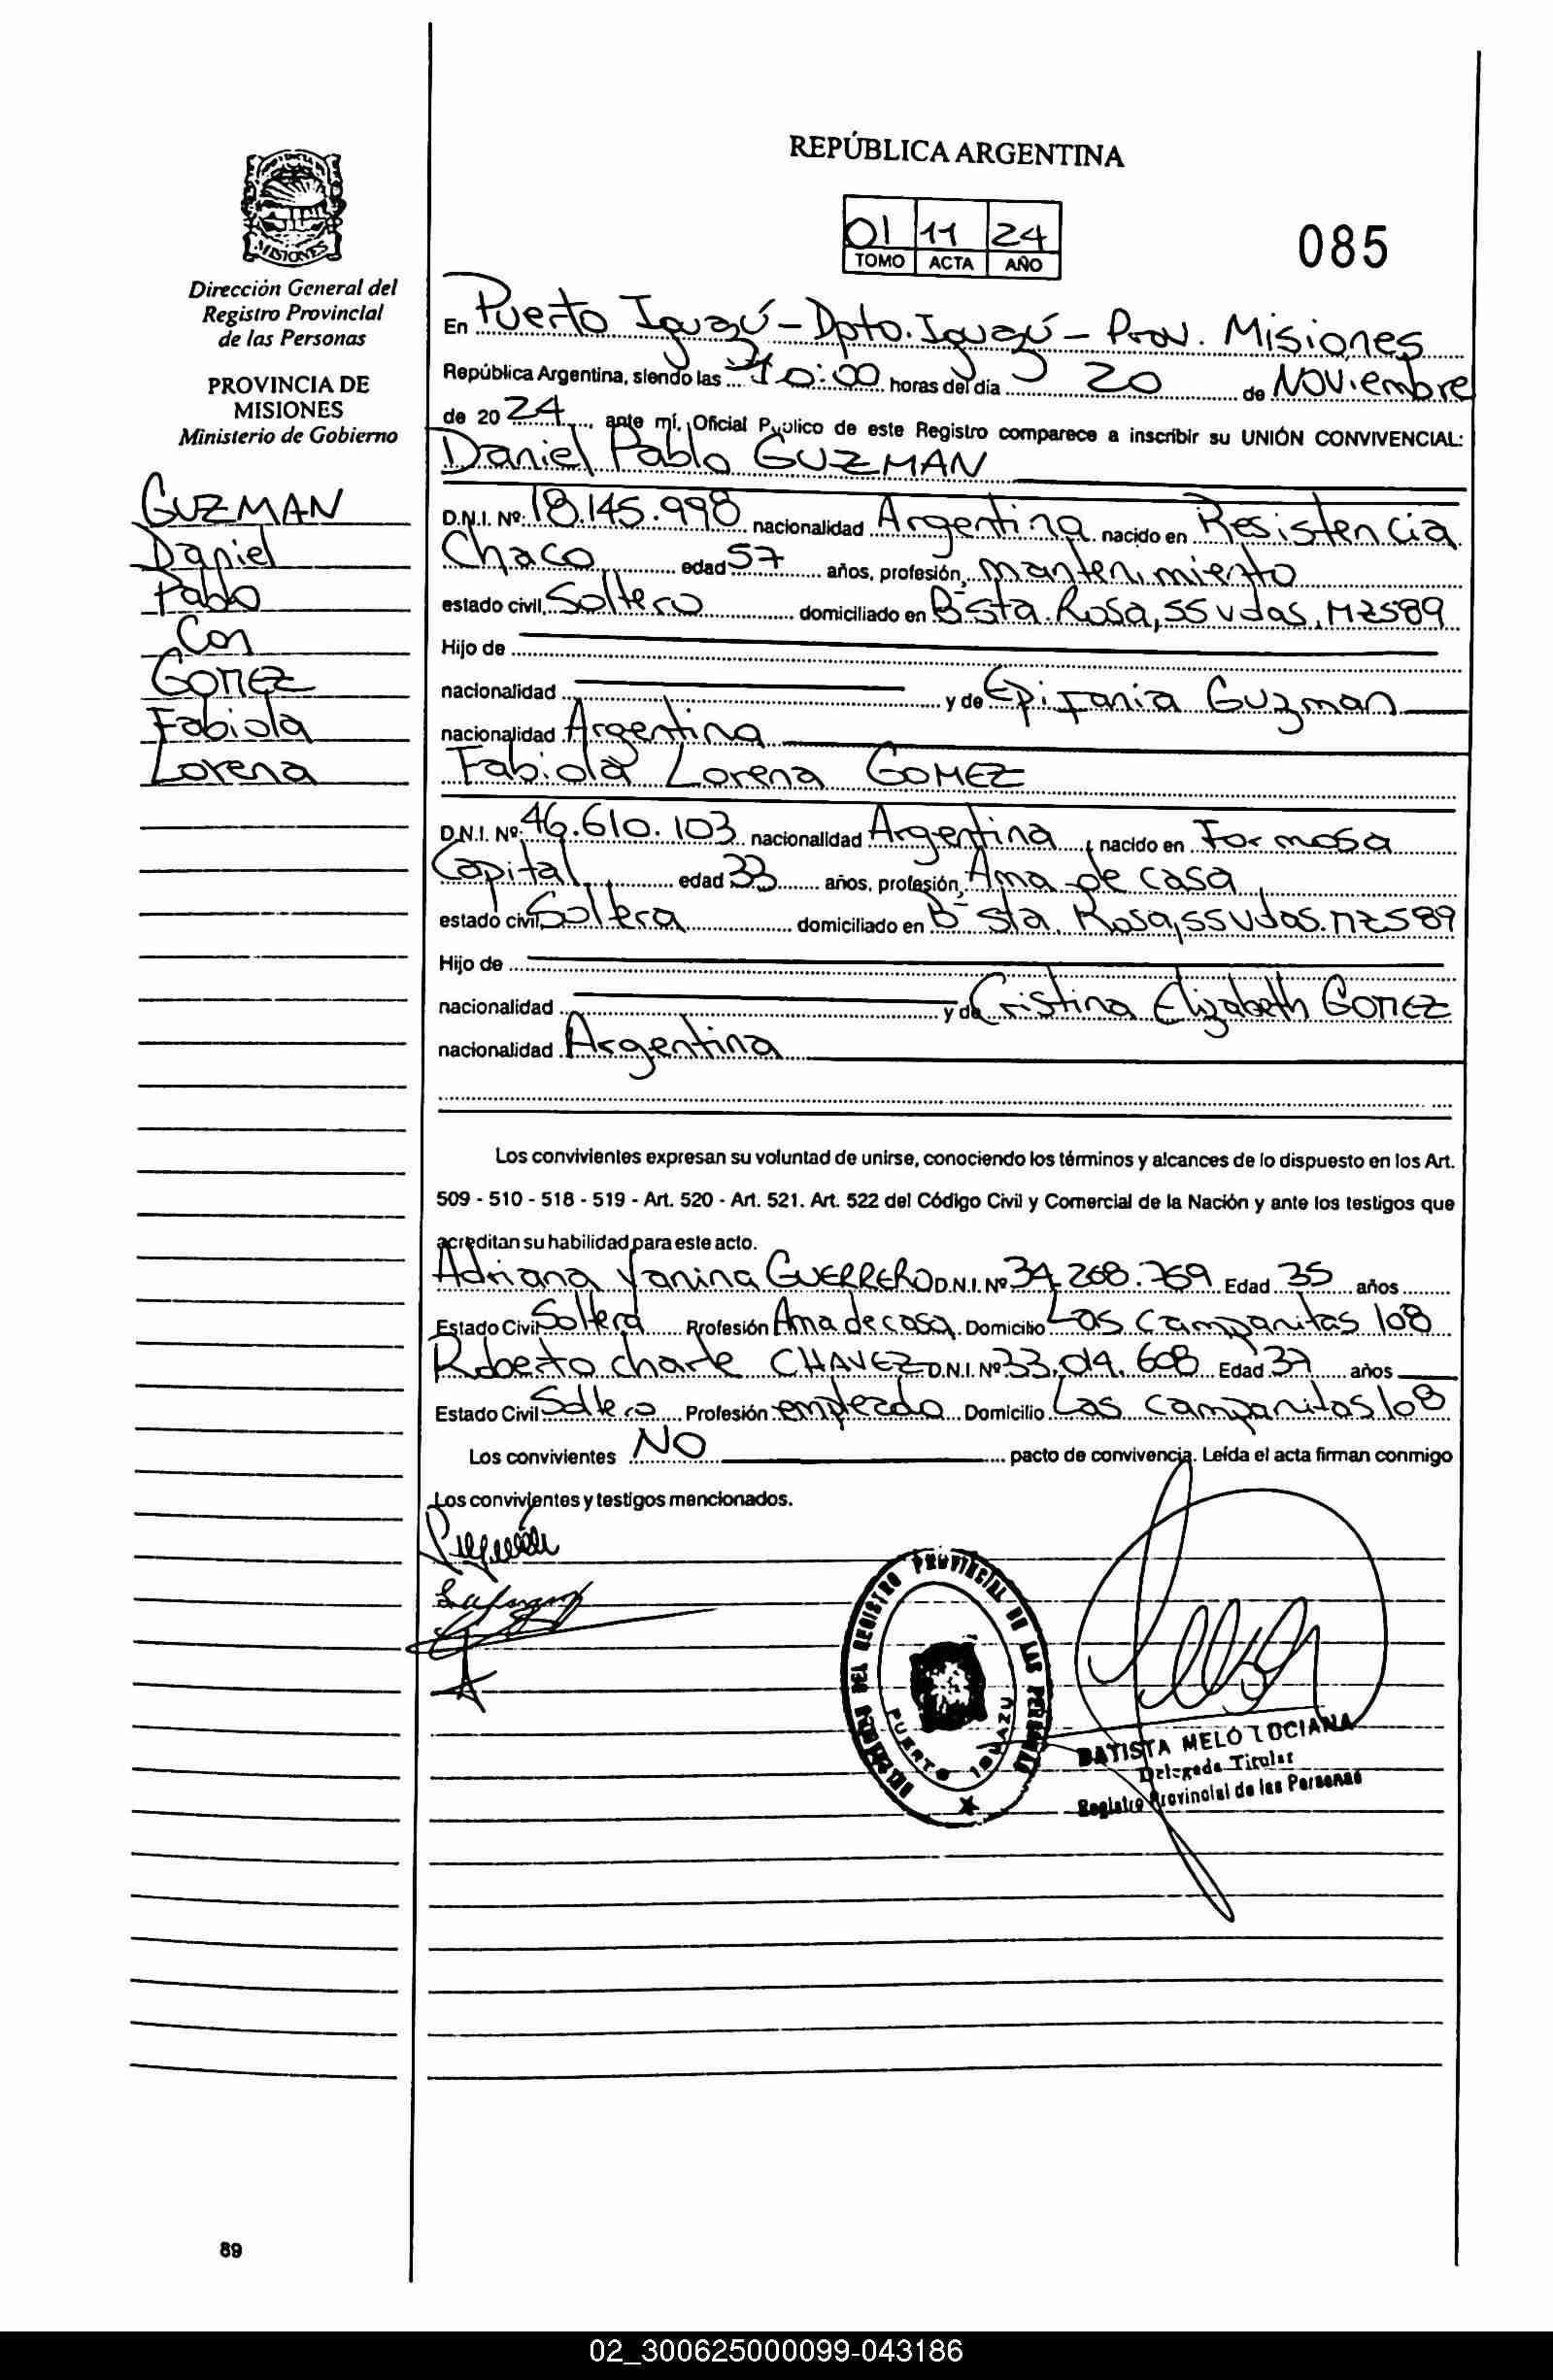 REPÚBLICA ARGENTINA
01 11 24
TOMO ACTA AÑO
085
MISIONES
Dirección General del
Registro Provincial
de las Personas
PROVINCIA DE
MISIONES
Ministerio de Gobierno
GUZMAN
Daniel
Pablo
Con
GOMEZ
Fabiola
Lorena
En Puerto Iguazú - Dpto. Iguazú - Prov. Misiones
República Argentina, siendo las 10:00 horas del día 20 de Noviembre
de 2024, ante mí, Oficial Publico de este Registro comparece a inscribir su UNIÓN CONVIVENCIAL:
Daniel Pablo GUZMAN
D.N.I. Nº: 18.145.998 nacionalidad Argentina nacido en Resistencia
Chaco edad 57 años, profesión, mantenimiento
estado civil, Soltero domiciliado en B° Sta. Rosa, 55 vdas, Mz589
Hijo de
nacionalidad y de Epifania Guzman
nacionalidad Argentina
Fabiola Lorena GOMEZ
D.N.I. Nº: 46.610.103 nacionalidad Argentina, nacido en Formosa
Capital edad 33 años, profesión, Ama de casa
estado civil, Soltera domiciliado en B° Sta. Rosa, 55 vdas. Mz589
Hijo de
nacionalidad y de Cristina Elizabeth GOMEZ
nacionalidad Argentina
Los convivientes expresan su voluntad de unirse, conociendo los términos y alcances de lo dispuesto en los Art.
509 - 510 - 518 - 519 - Art. 520 - Art. 521. Art. 522 del Código Civil y Comercial de la Nación y ante los testigos que
acreditan su habilidad para este acto.
Adriana Yanina GUERRERO D.N.I. Nº 34.268.769 Edad 35 años
Estado Civil Soltera Profesión Ama de casa Domicilio Las Campanitas 108
Roberto charle CHAVEZ D.N.I. Nº 33.014.608 Edad 37 años
Estado Civil Soltero Profesión empleado Domicilio Las Campanitas 108
Los convivientes NO pacto de convivencia. Leída el acta firman conmigo
Los convivientes y testigos mencionados.
DEL REGISTRO PROVINCIAL DE LAS PERSONAS
PUERTO IGUAZU
BATISTA MELO LUCIANA
Delegada Titular
Registro Provincial de las Personas
89
02_300625000099-043186